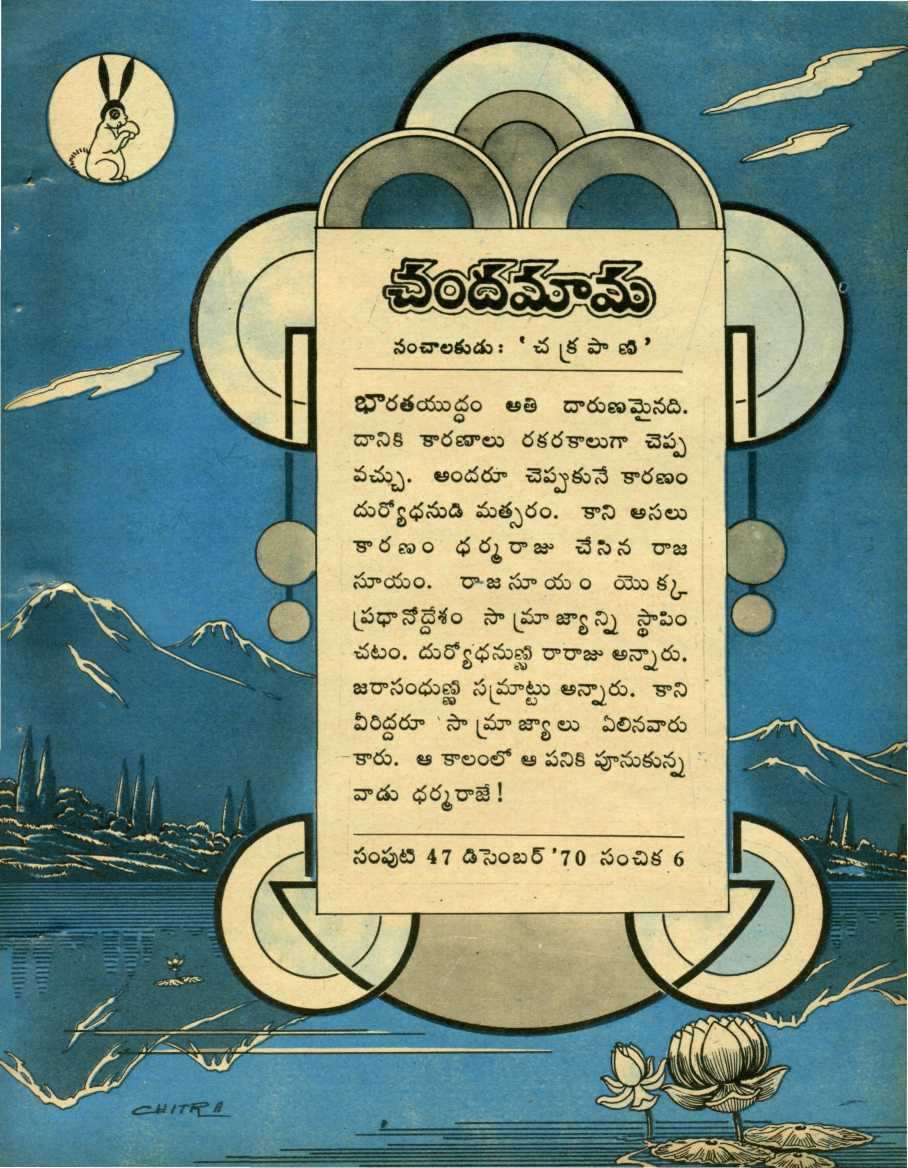 చందమామ
సంచాలకుడు: 'చక్రపాణి'
భారతయుద్ధం అతి దారుణమైనది.
దానికి కారణాలు రకరకాలుగా చెప్ప
వచ్చు. అందరూ చెప్పుకునే కారణం
దుర్యోధనుడి మత్సరం. కాని అసలు
కారణం ధర్మరాజు చేసిన రాజ
సూయం. రాజసూయం యొక్క
ప్రధానోద్దేశం సామ్రాజ్యాన్ని స్థాపిం
చటం. దుర్యోధనుణ్ణి రారాజు అన్నారు.
జరాసంధుణ్ణి సమ్రాట్టు అన్నారు. కాని
వీరిద్దరూ సామ్రాజ్యాలు ఏలినవారు
కారు. ఆ కాలంలో ఆ పనికి పూనుకున్న
వాడు ధర్మరాజే!
సంపుటి 47 డిసెంబర్ '70 సంచిక 6
CHITRA